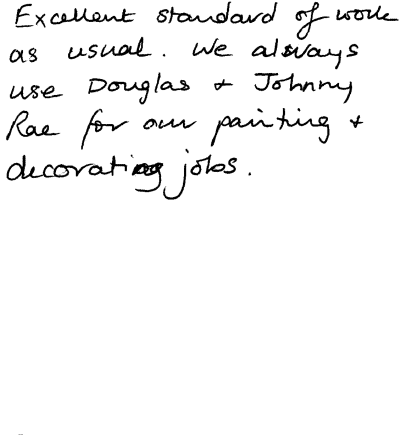 Excellent standard of work
as usual. We always
use Douglas + Johnny
Rae for our painting +
decorating jobs.